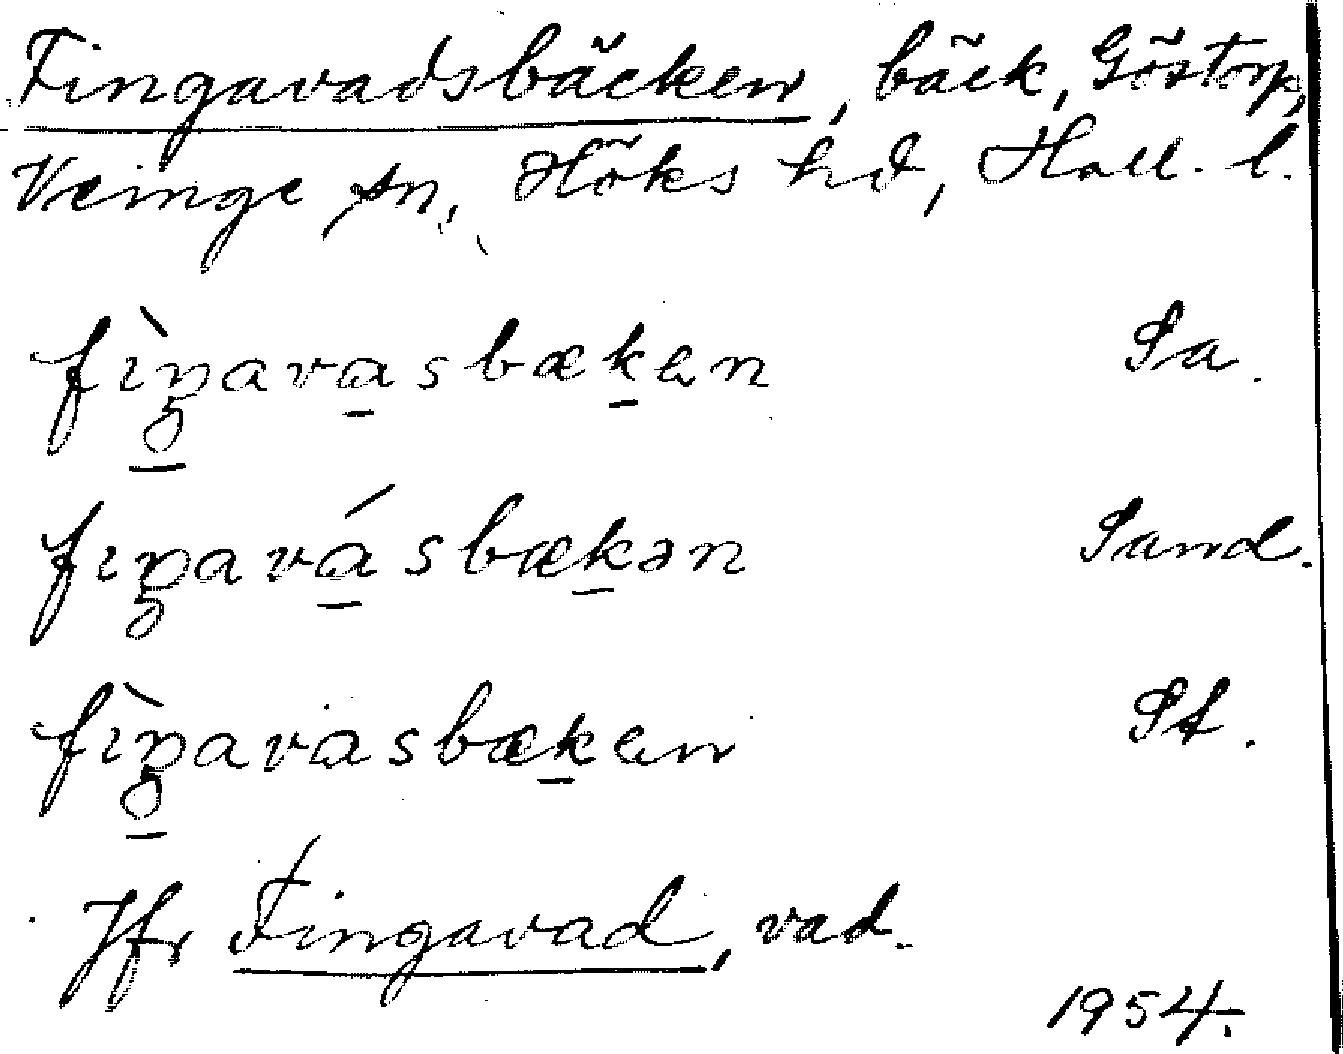 Fingavadsbäcken, bäck, Göstorp,
Veinge sn, Höks hd, Hall. l.
fìŋavasbæken Sa.
fiŋavásbækən Sand.
fìŋavasbæken St.
Jfr Fingavad, vad.
1954.